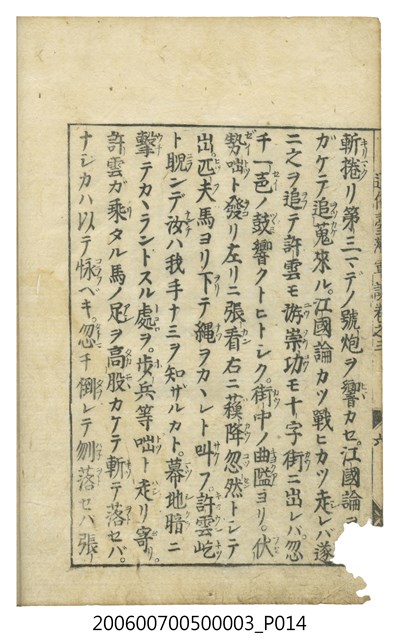 通俗臺灣軍談卷之三 六
斬捲リ第三ニデノ號炮ヲ響カセ。江國論ヲ
ガケテ追蒐來ル。江國論カツ戰ヒカツ走レバ遂
ニ之ヲ追テ許雲モ游崇功モ十字街ニ出レバ。忽
チ一邑ノ鼓響クトヒトシク。街中ノ曲隘ヨリ。伏
勢咄ト發リ左リニ張看右ニ蘓降忽然トシテ
出。匹夫馬ヨリ下テ縄ヲカヽレト叫フ。許雲屹
ト睨ンデ汝ハ我手ナミヲ知ザルカト。幕地暗ニ
擊テカヽランドスル處ヲ。歩兵等咄ト走リ寄リ。
許雲ガ乘タル馬ノ足ヲ高股カケテ斬テ落セバ。
ナシカハ以テ怺ベキ。忽チ倒レテ刎落セハ張
200600700500003_P014